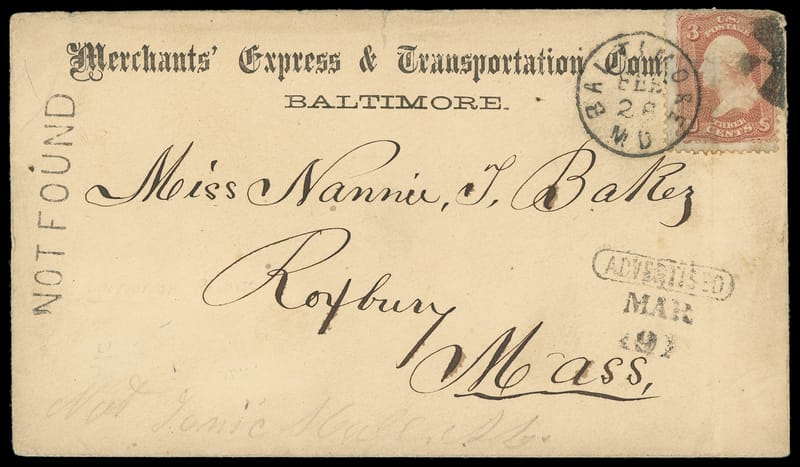 Merchants' Express & Transportation Com
BALTIMORE.
BALTIMORE
FEB
28
MD
U.S.
POSTAGE
3
THREE
CENTS
NOT FOUND
Miss Nannie, J. Baker
Roxbury
Mass,
ADVERTISED
MAR